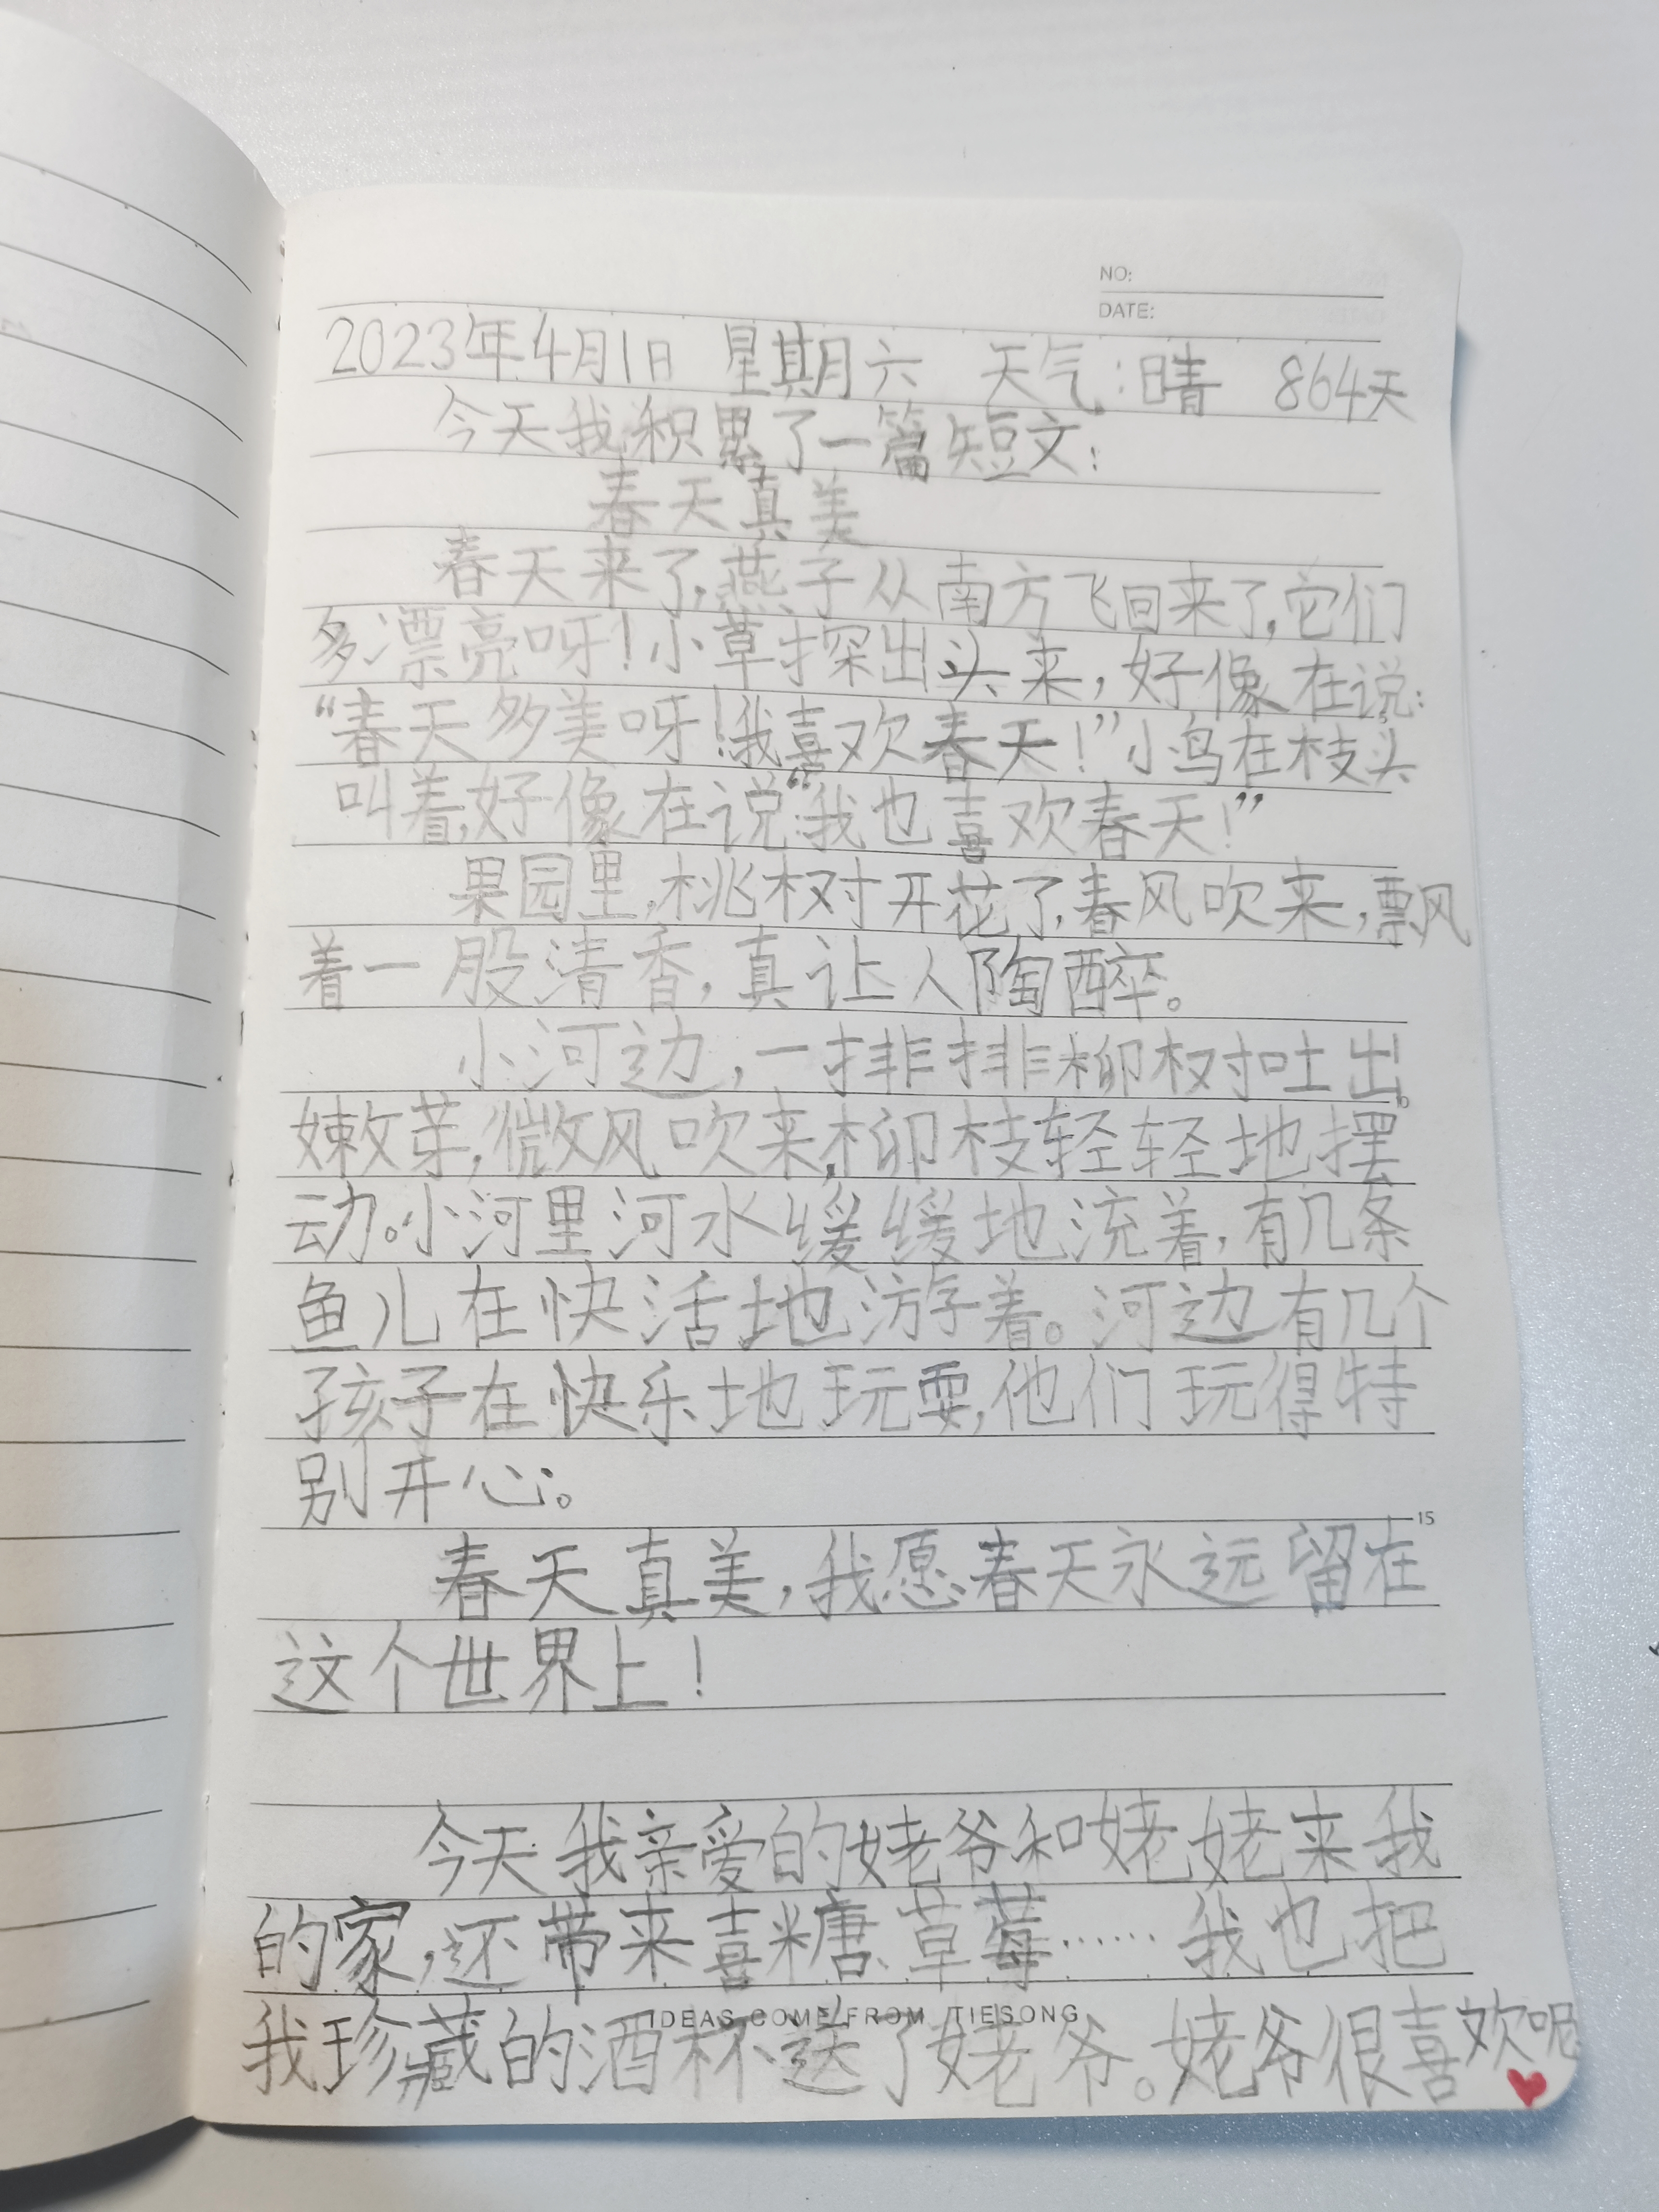 NO:
DATE:
2023年4月1日 星期六 天气:晴 864天
今天我积累了一篇短文:
春天真美
春天来了,燕子从南方飞回来了,它们
多漂亮呀!小草探出头来,好像在说:
“春天多美呀!我喜欢春天!”小鸟在枝头
叫着,好像在说:“我也喜欢春天!”
果园里,桃树开花了,春风吹来,飘
着一股清香,真让人陶醉。
小河边,一排排柳树吐出
嫩芽,微风吹来,柳枝轻轻地摆
动。小河里河水缓缓地流着,有几条
鱼儿在快活地游着。河边有几个
孩子在快乐地玩耍,他们玩得特
别开心。
15
春天真美,我愿春天永远留在
这个世界上!
今天我亲爱的姥爷和姥姥来我
的家,还带来喜糖、草莓……我也把
IDEAS COME FROM TIESONG
我珍藏的酒杯送了姥爷。姥爷很喜欢呢